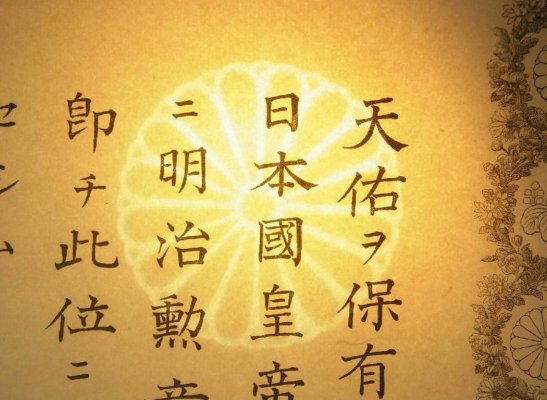 天佑ヲ保有
日本國皇帝
ニ明治勲章
即チ此位ニ
セシム